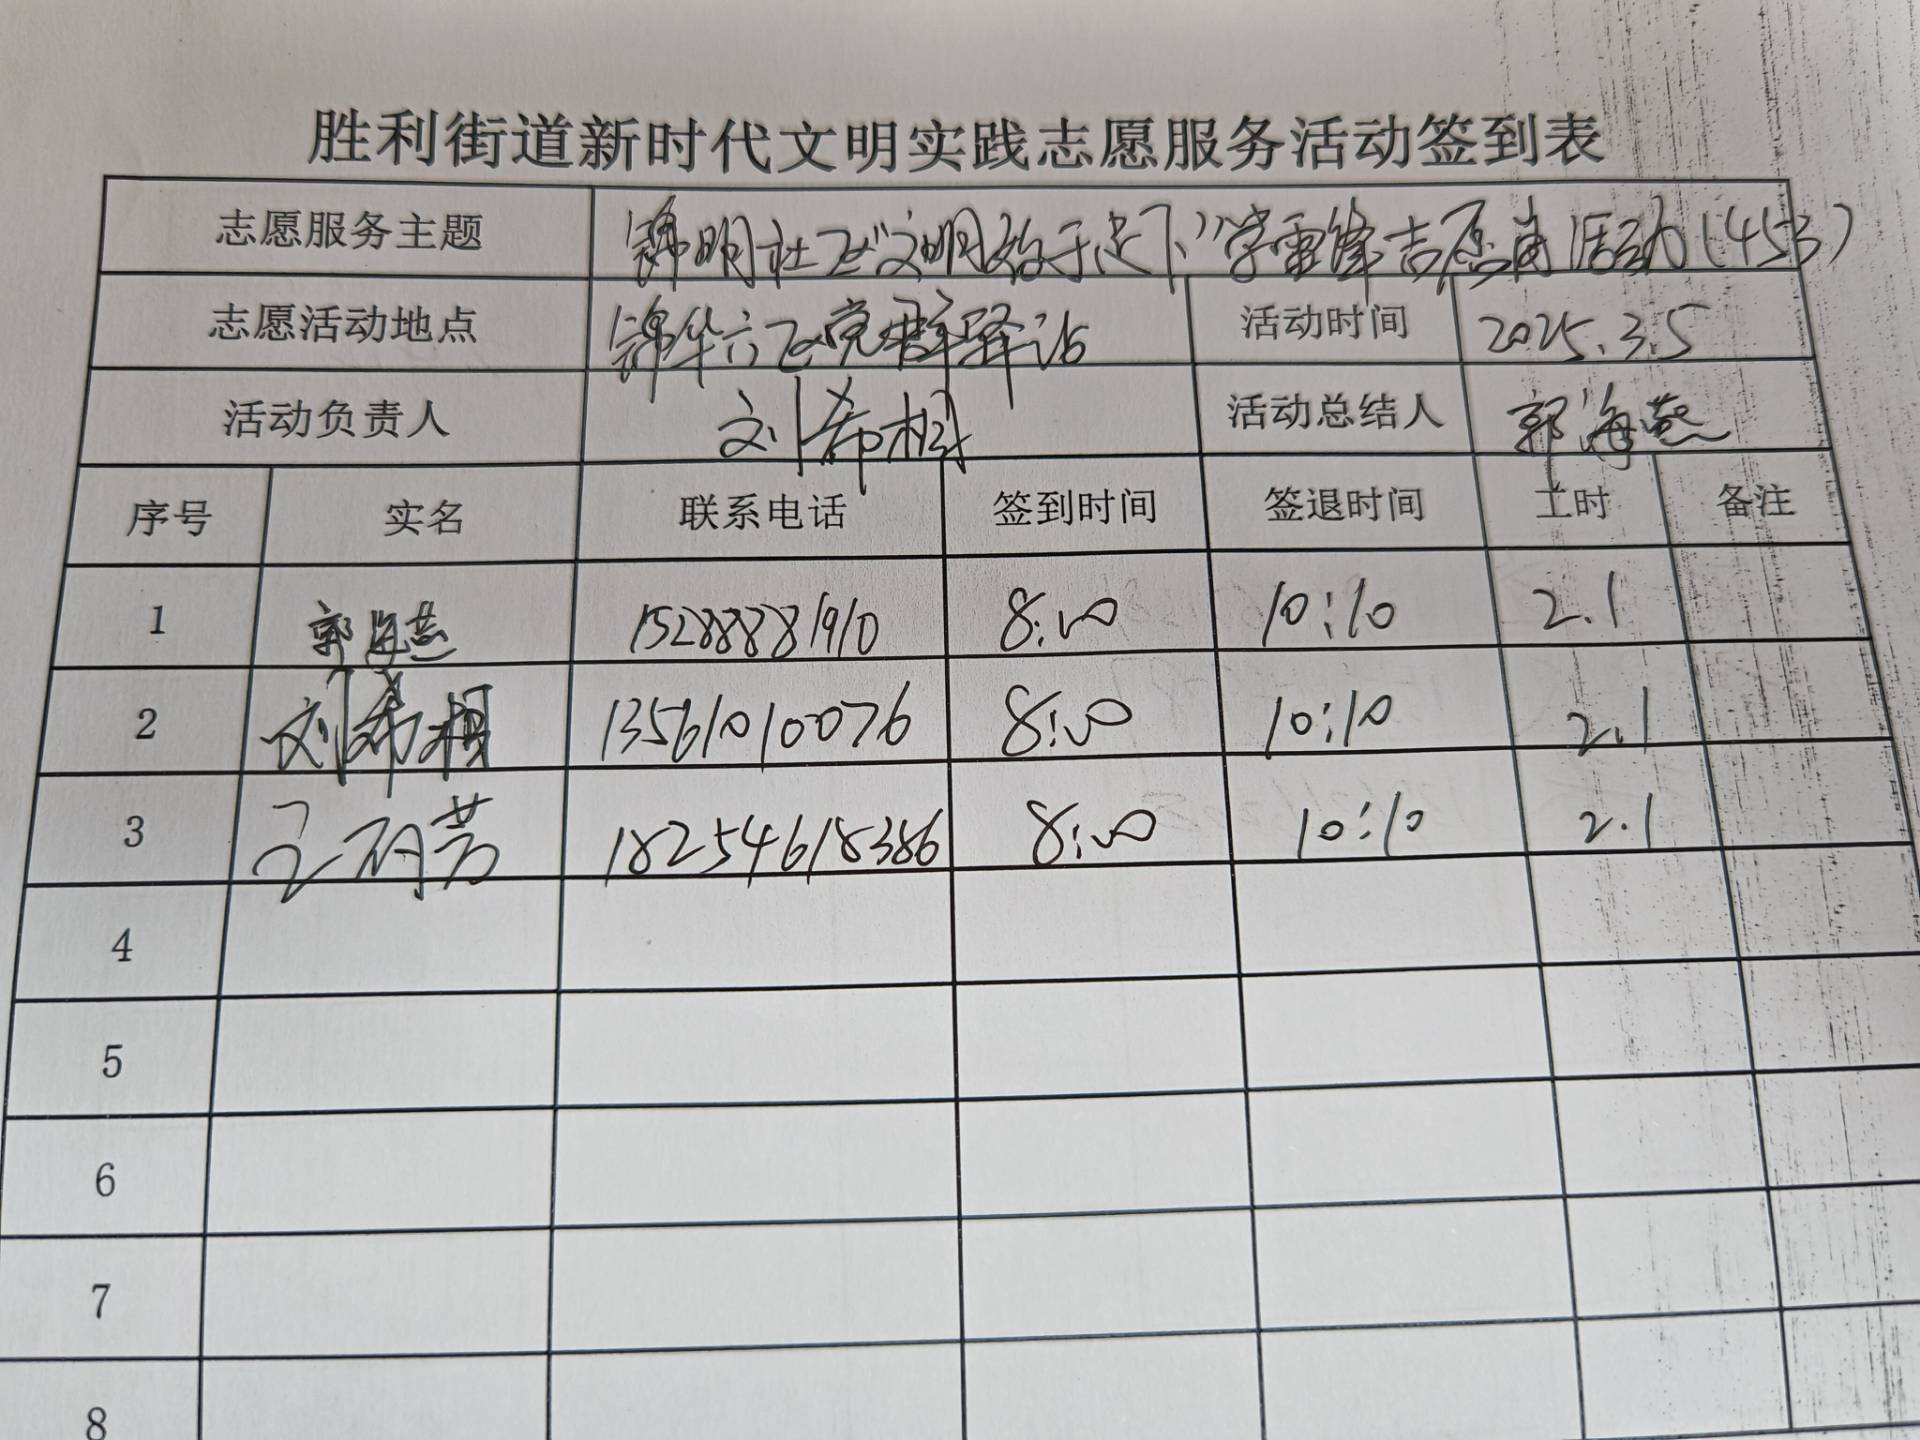 胜利街道新时代文明实践志愿服务活动签到表
志愿服务主题 锦明社区"文明始于足下"学雷锋志愿者活动(453)
志愿活动地点 锦华六区党群驿站 活动时间 2025.3.5
活动负责人 刘希 活动总结人 郭海燕
序号 实名 联系电话 签到时间 签退时间 工时 备注
1 郭海燕 15288881910 8:00 10:10 2.1
2 刘希 13561010076 8:00 10:10 2.1
3 王 芳 18254618386 8:00 10:10 2.1
4
5
6
7
8